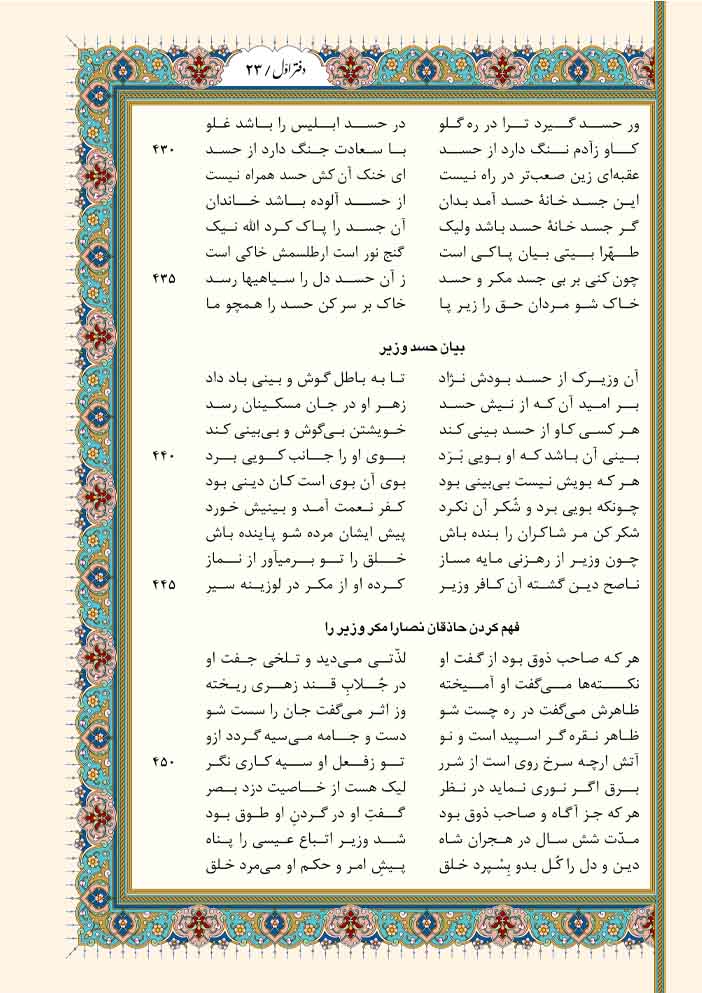 دفتر اول / ۲۳
ور حسد گیرد ترا در ره گلو در حسد ابلیس را باشد غلو
کاو زآدم ننگ دارد از حسد با سعادت جنگ دارد از حسد ۴۳۰
عقبه‌ای زین صعب‌تر در راه نیست ای خنک آن کش حسد همراه نیست
این جسد خانهٔ حسد آمد بدان از حسد آلوده باشد خاندان
گر جسد خانهٔ حسد باشد ولیک آن جسد را پاک کرد الله نیک
طهّرا بیتی بیان پاکی است گنج نور است ارطلسمش خاکی است
چون کنی بر بی جسد مکر و حسد ز آن حسد دل را سیاهیها رسد ۴۳۵
خاک شو مردان حق را زیر پا خاک بر سر کن حسد را همچو ما
بیان حسد وزیر
آن وزیرک از حسد بودش نژاد تا به باطل گوش و بینی باد داد
بر امید آن که از نیش حسد زهر او در جان مسکینان رسد
هر کسی کاو از حسد بینی کند خویشتن بی‌گوش و بی‌بینی کند
بینی آن باشد که او بویی بَرَد بوی او را جانب کویی برد ۴۴۰
هر که بویش نیست بی‌بینی بود بوی آن بوی است کان دینی بود
چونکه بویی برد و شُکر آن نکرد کفر نعمت آمد و بینیش خورد
شکر کن مر شاکران را بنده باش پیش ایشان مرده شو پاینده باش
چون وزیر از رهزنی مایه مساز خلق را تو بر می‌آور از نماز
ناصح دین گشته آن کافر وزیر کرده او از مکر در لوزینه سیر ۴۴۵
فهم کردن حاذقان نصارا مکر وزیر را
هر که صاحب ذوق بود از گفت او لذّتی می‌دید و تلخی جفت او
نکته‌ها می‌گفت او آمیخته در جُلابِ قند زهری ریخته
ظاهرش می‌گفت در ره چست شو وز اثر می‌گفت جان را سست شو
ظاهر نقره گر اسپید است و نو دست و جامه می‌سیه گردد ازو
آتش ارچه سرخ روی است از شرر تو زفعل او سیه کاری نگر ۴۵۰
برق اگر نوری نماید در نظر لیک هست از خاصیت دزد بصر
هر که جز آگاه و صاحب ذوق بود گفتِ او در گردنِ او طوق بود
مدّت شش سال در هجران شاه شد وزیر اتباع عیسی را پناه
دین و دل را کُل بدو بِسْپرد خلق پیشِ امر و حکم او می‌مرد خلق